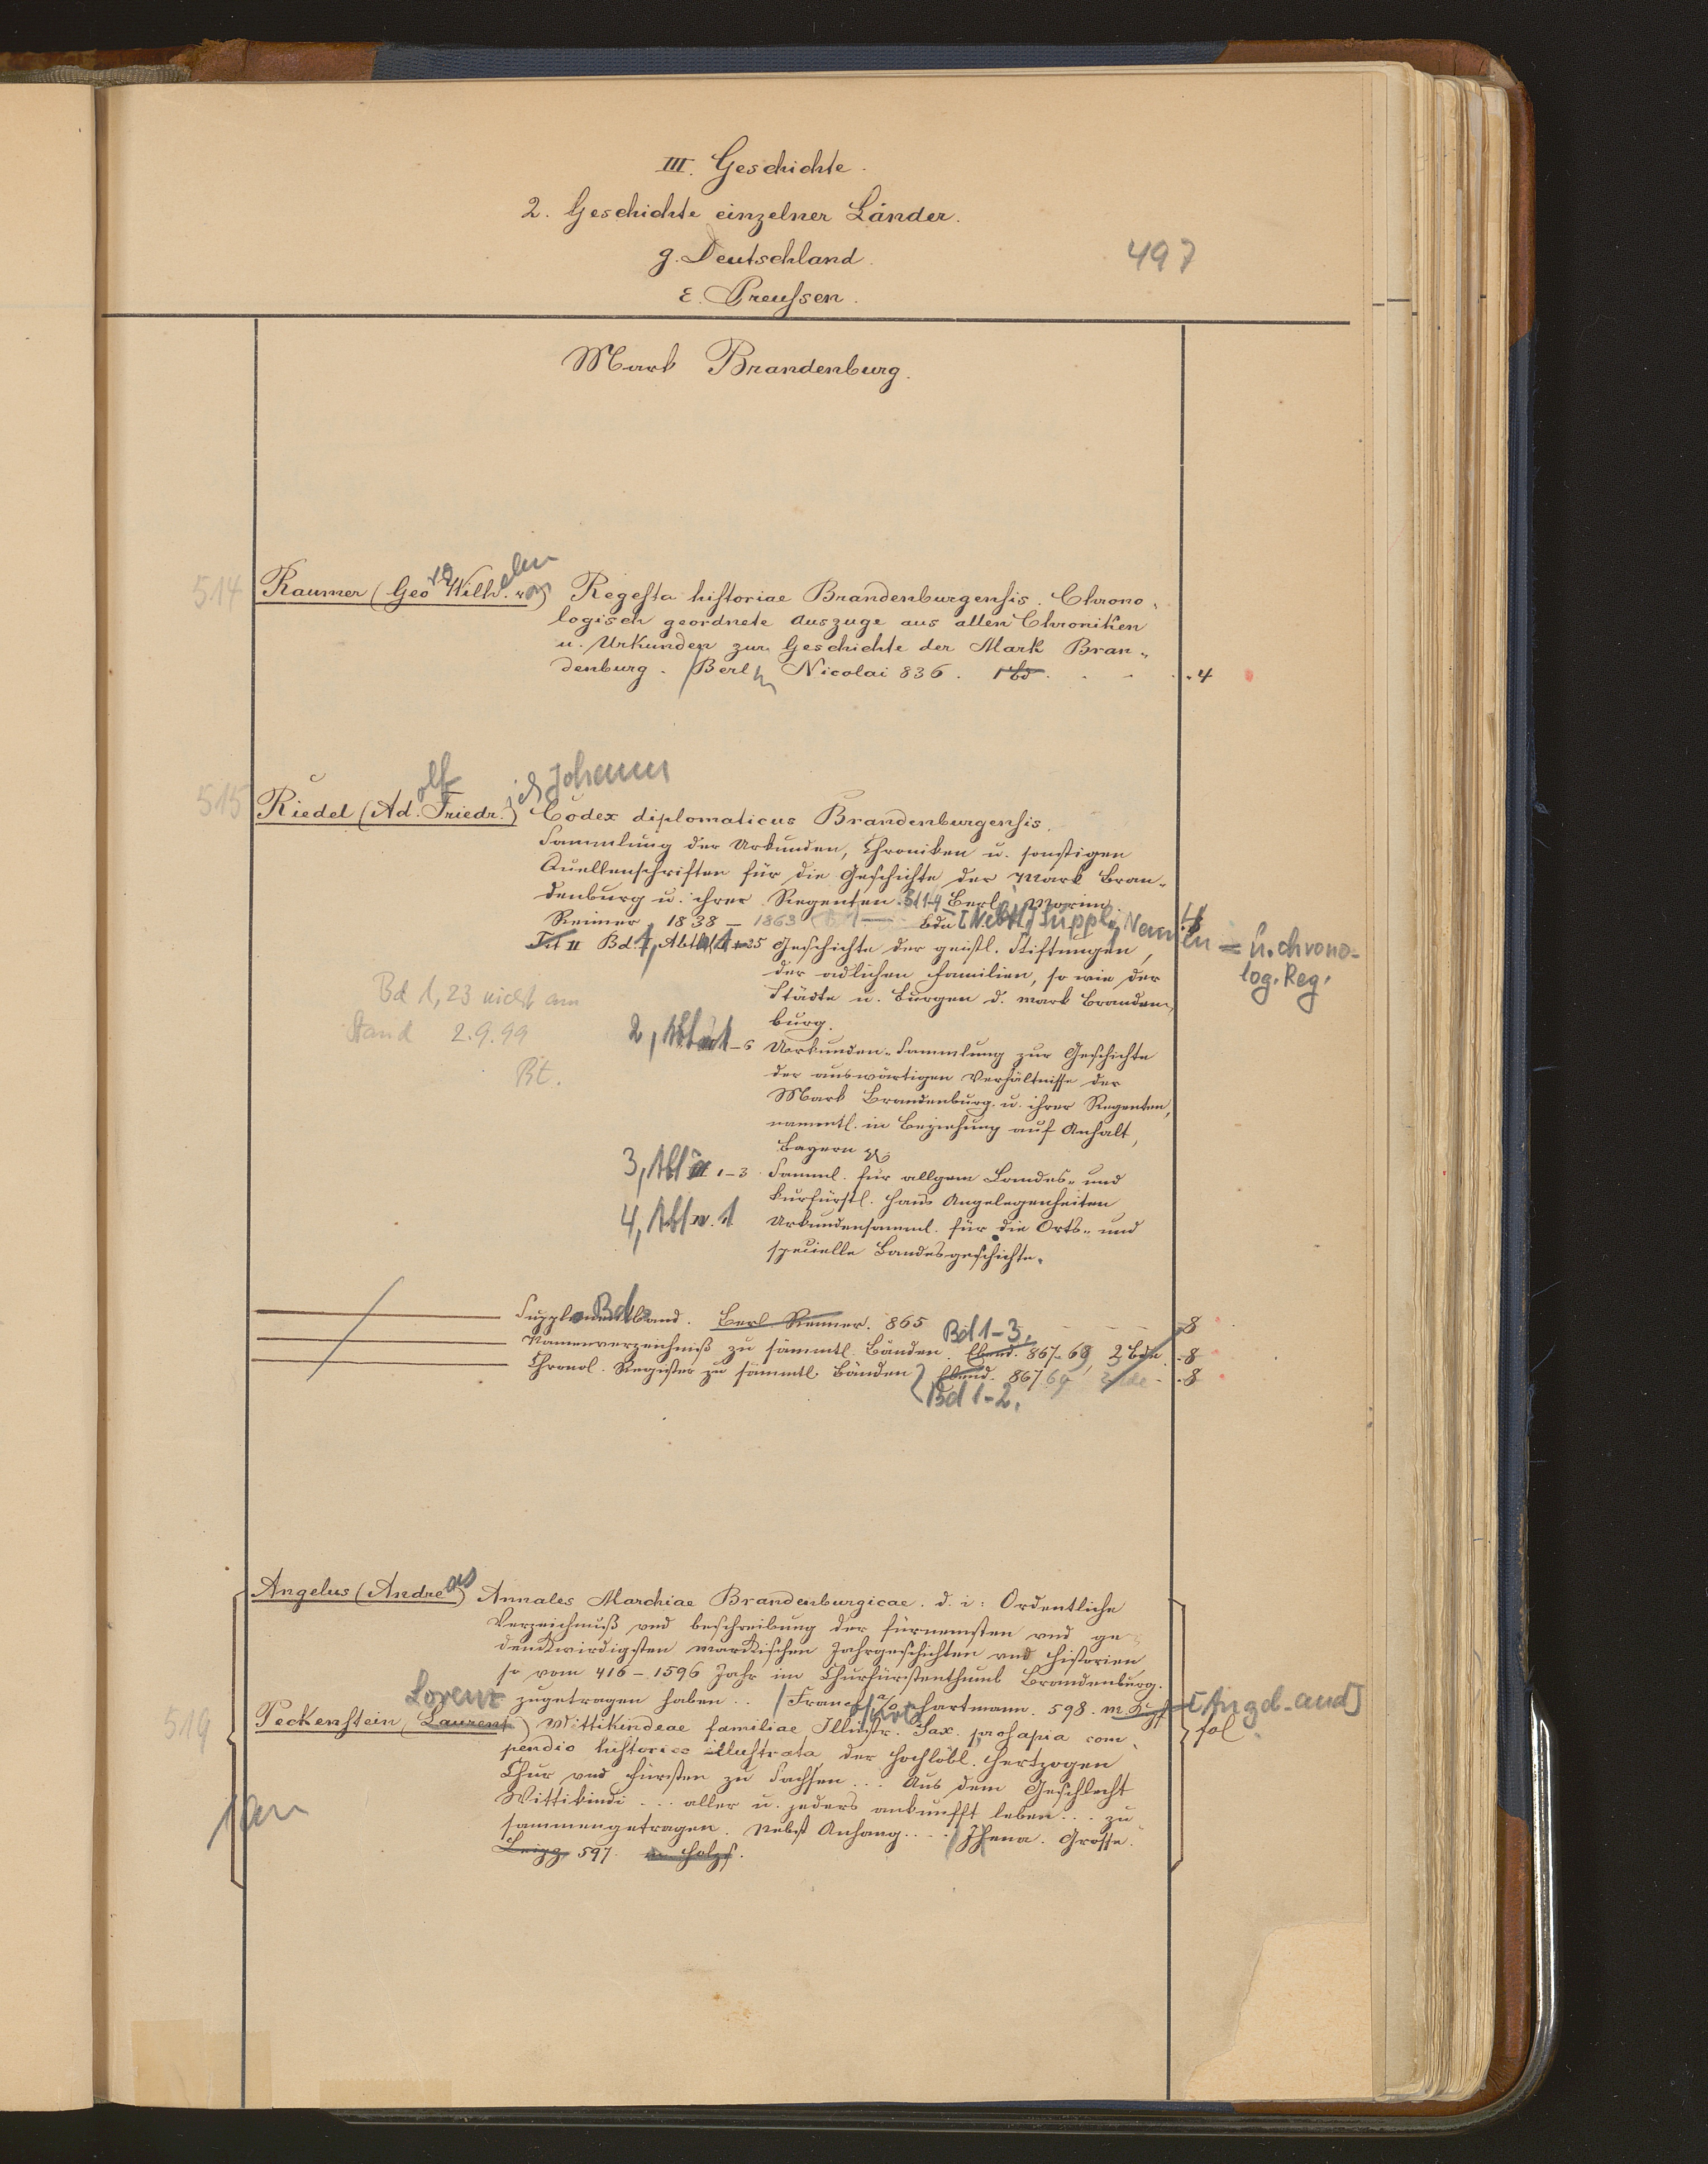 III. Geschichte.
2. Geschichte einzelner Länder.
g. Deutschland.
497
ε. Preußen.
Mark Brandenburg.
514 Raumer (Georg Wilhelm von) Regesta historiae Brandenburgensis. Chrono-
logisch geordnete Auszüge aus allen Chroniken
u. Urkunden zur Geschichte der Mark Bran-
denburg. Berlin Nicolai 836. 1 Bd. 4
515 Riedel (Adolf Friedrich Johann) Codex diplomaticus Brandenburgensis.
Sammlung der Urkunden, Chroniken u. sonstigen
Quellenschriften für die Geschichte der Mark Bran-
denburg u. ihrer Regenten. Berl. Morin
Reimer 1838–1863 Bde [Nebst] Suppl., Namen = u. chrono-
log. Reg.
Bd. 1, Abth. 1–25 Geschichte der geistl. Stiftungen,
der adlichen Familien, so wie der
Städte u. Burgen d. Mark Branden-
burg.
Bd 1,23 nicht am
Stand 2.9.99
Bt.
2, Abt 1–6 Urkunden-Sammlung zur Geschichte
der auswärtigen Verhältnisse der
Mark Brandenburg u. ihrer Regenten,
namentl. in Beziehung auf Anhalt,
Bayern
3, Abt III 1–3 Samml. für allgem Landes- und
kurfürstl. Haus Angelegenheiten
4, Abt IV. 1 Urkundensamml. für die Orts- und
specielle Landesgeschichte.
Supplementband. Berl. Reimer. 865 8
Namenverzeichniß zu sämmtl. Bänden. Bd 1–3. Ebend. 867–68, 2 Bde 8
Chronol. Register zu sämmtl. Bänden Ebend. 867 69 8
Bd 1–2.
Angelus (Andreas) Annales Marchiae Brandenburgicae. d. i: Ordentliche
Verzeichnuß vnd beschreibung der fürnemsten vnd ge
denckwirdigsten märckischen Jahrgeschichten vnd Historien
so vom 416–1596 Jahr im Churfürstenthumb Brandenburg.
zugetragen haben .. Franckf a/o Hartmann. 598. [Angeb. and]
519 Peckenstein (Laurent) Lorenz Wittikindeae familiae Illustr. Sax. prosapia com- fol
pendio historico illustrata der Hochlöbl. Hertzogen
Chur vnd Fürsten zu Sachsen ... Aus dem Geschlecht
Wittikindi ... aller u. jeders ankunfft leben ... zu
sammengetragen. Nebst Anhang .... Jhena. Grosse.
Leipz. 597. m Holzs.